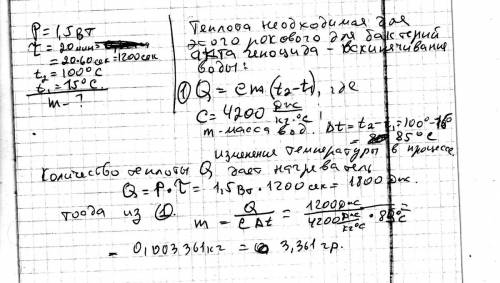 P = 1,5 Вт
τ = 20 мин =
= 20·60 сек = 1200 сек
t₂ = 100°C
t₁ = 15°C.
m - ?
Теплова необходимая для
этого рокового для бактерий
акта геноцида - вскипячивание
воды:
① Q = cm(t₂-t₁), где
C = 4200 Дж/кг·°C
m - масса вод. Δt = t₂-t₁ = 100°-15°
= 85°C
изменение температуры в процессе.
Количество теплоты Q дает нагреватель
Q = P·τ = 1,5 Вт · 1200 сек = 1800 Дж.
тогда из ①.
m = Q/cΔt = 1200 Дж/4200 Дж/кг°C · 85°C =
= 0,003361 кг = 3,361 гр.